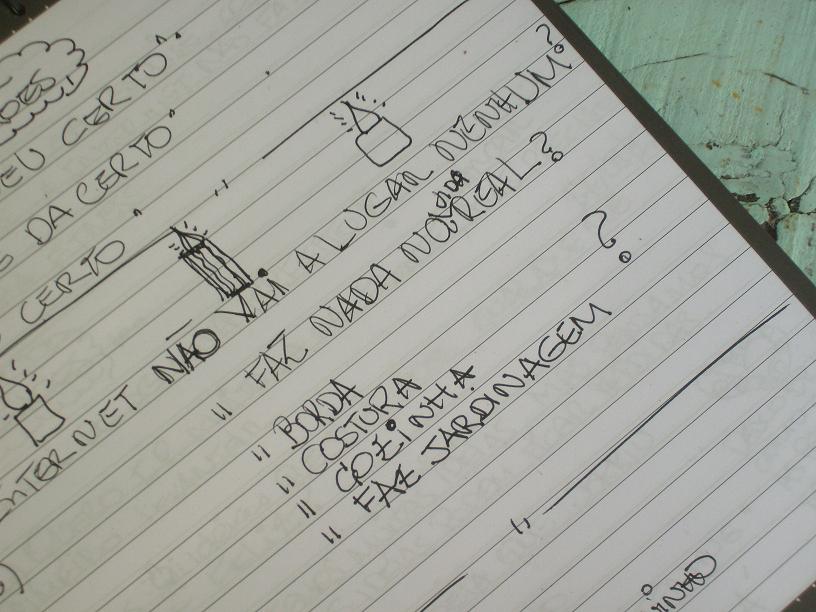 DEU CERTO".
DA CERTO"
CERTO"
"
INTERNET NÃO VAI A LUGAR NENHUM?
" FAZ NADA NO REAL?
VIDA
" BORDA
" COSTURA
" COZINHA
" FAZ JARDINAGEM ?
"